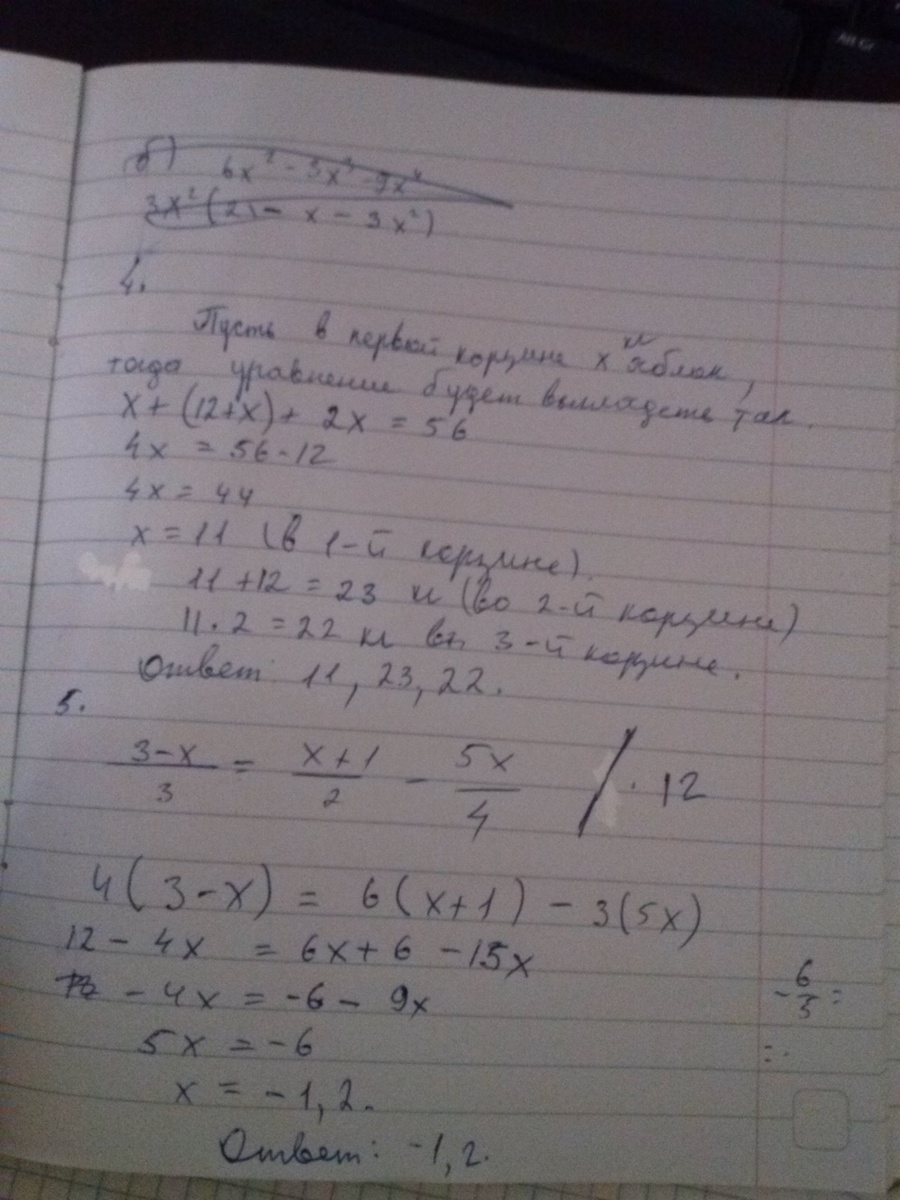 б) 6x² - 3x³ - 9x⁴
3x² (2 - x - 3x²)
4.
Пусть в первой корзине x кг яблок,
тогда уравнение будет выглядеть так.
x + (12+x) + 2x = 56
4x = 56-12
4x = 44
x = 11 (в 1-й корзине).
11+12 = 23 кг (во 2-й корзине)
11·2 = 22 кг в 3-й корзине.
Ответ: 11, 23, 22.
5.
(3-x)/3 = (x+1)/2 - 5x/4 / · 12
4(3-x) = 6(x+1) - 3(5x)
12 - 4x = 6x + 6 - 15x
- 4x = -6 - 9x
-6/3 =
5x = -6
= .
x = -1,2.
Ответ: -1,2.